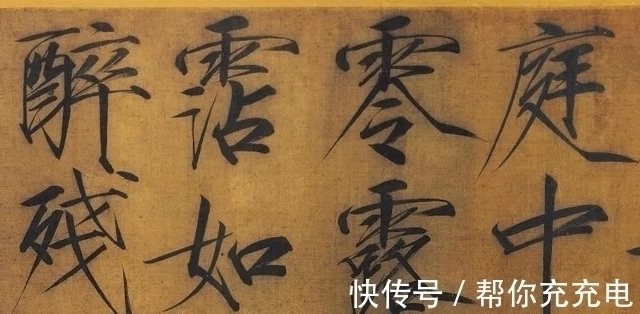 庭中
零露
霑如
醉殘
快传号 / 帮你充充电